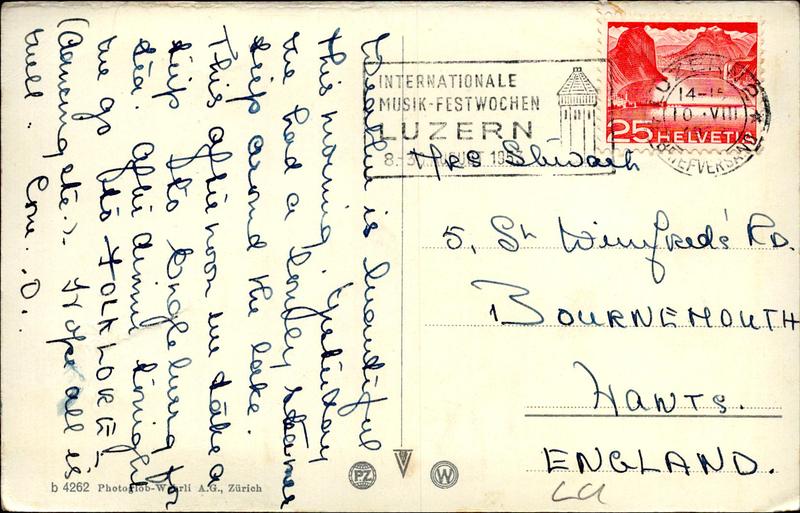 Weather is beautiful
this morning. Yesterday
we had a lovely steamer
trip around the lake.
This afternoon we take a
trip to Engleburg for
tea. After dinner tonight
we go to FOLKLORE
(dancing etc.). Hope all is
well. Love. D.
INTERNATIONALE
MUSIK-FESTWOCHEN
LUZERN
AUGUST
14-
10.VIII
BRIEFVERSAND
25 HELVETIA
Mrs
5, St Winifred's Rd.
BOURNEMOUTH
HANTS.
ENGLAND.
b 4262 Photoglob-Wehrli A.G., Zürich
PZ
W